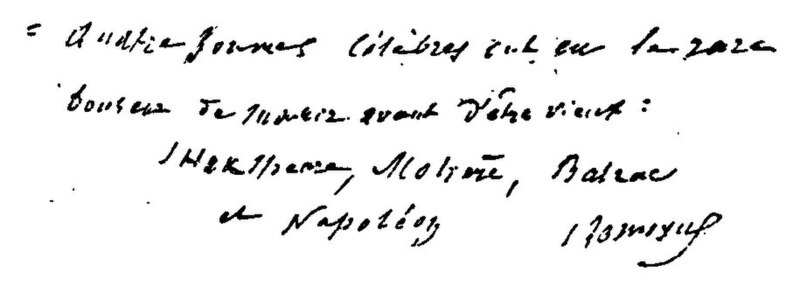 = Quatre hommes célèbres ont eu le rare
bonheur de mourir avant d'être vieux :
Shakspeare, Molière, Balzac
et Napoléon